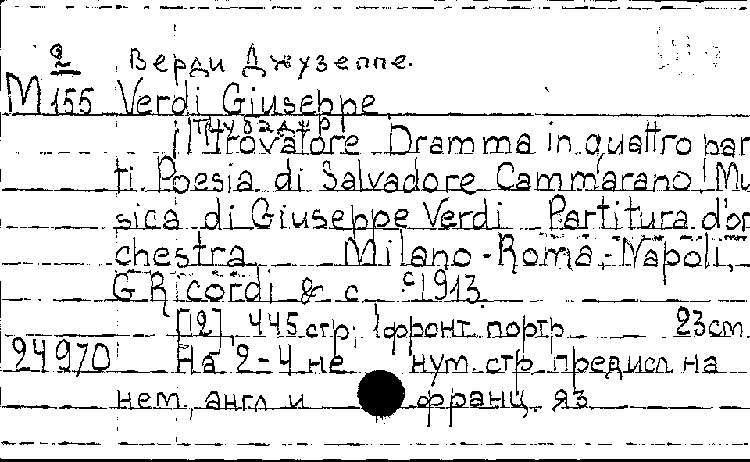 2
Верди Джузеппе.
М 155 Verdi Giuseppe
Трубадур
il Trovatore Dramma in quattro par
ti. Poesia di Salvadore Cammarano Mu
sica di Giuseppe Verdi Partitura d'or
chestra Milano-Roma-Napoli,
G Ricordi & c. c1913.
[12], 445 стр; 1 фронт. портр 23cm
24970 На 2-4 не нум. стр предисл на
нем, англ и франц. яз